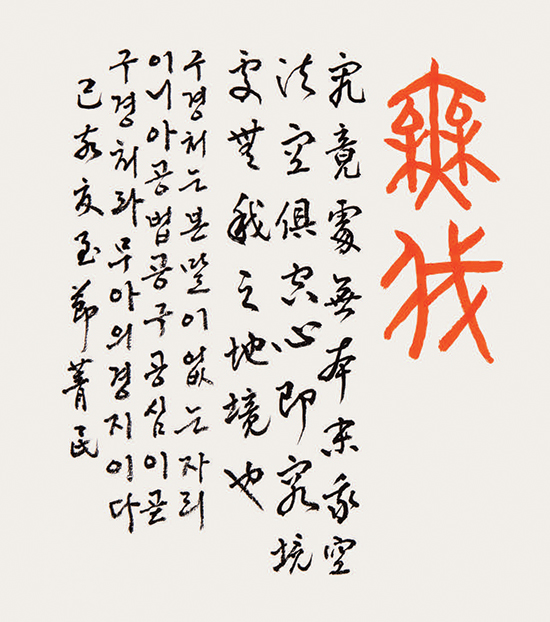 無我
究竟處無本末我空
法空俱空心即究境
處無我之地境也
구경처는본말이없는자리
이니아공법공구공심이곧
구경처라무아의경지이다
己亥夏至節菁民